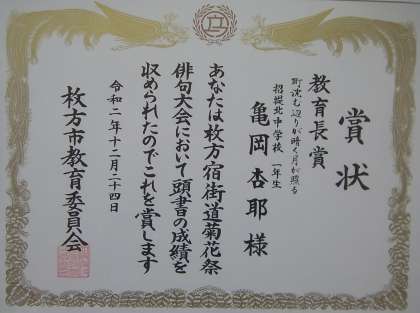 賞状
教育長賞
町沈む辺りが暗く月が照る
招提北中学校 一年生
亀岡杏耶 様
あなたは枚方宿街道菊花祭
俳句大会において頭書の成績を
収められたのでこれを賞します
令和二年十二月二十四日
枚方市教育委員会